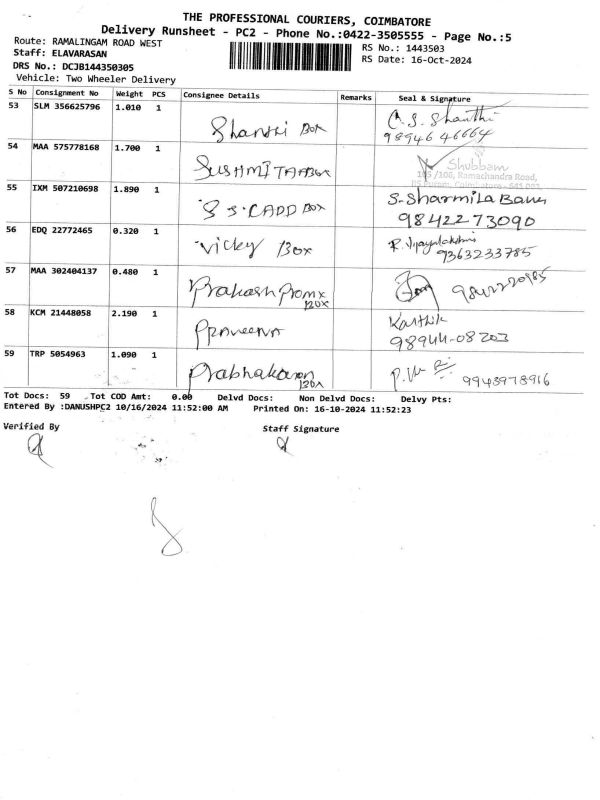 THE PROFESSIONAL COURIERS, COIMBATORE
Delivery Runsheet - PC2 - Phone No.:0422-3505555 - Page No.:5
Route: RAMALINGAM ROAD WEST
RS No.: 1443503
Staff: ELAVARASAN
RS Date: 16-Oct-2024
DRS No.: DCJB144350305
Vehicle: Two Wheeler Delivery
S No Consignment No Weight PCS Consignee Details Remarks Seal & Signature
53 SLM 356625796 1.010 1 Shanthi BOX C.S. Shanthi
98946 46664
54 MAA 575778168 1.700 1 SUSHMITAA BOX Shubbam
105 /106, Ramachandra Road,
55 IXM 507210698 1.890 1 S S. CADD BOX S. Sharmila Banu
9842273090
56 EDQ 22772465 0.320 1 Vicky BOX R. Vijayalakshmi
9363233785
57 MAA 302404137 0.480 1 Prakash Promx BOX
58 KCM 21448058 2.190 1 Praveena Karthik
98944-08203
59 TRP 5054963 1.090 1 Prabhakaran BOX 9943978916
Tot Docs: 59 Tot COD Amt: 0.00 Delvd Docs: Non Delvd Docs: Delvy Pts:
Entered By :DANUSHPC2 10/16/2024 11:52:00 AM Printed On: 16-10-2024 11:52:23
Verified By Staff Signature